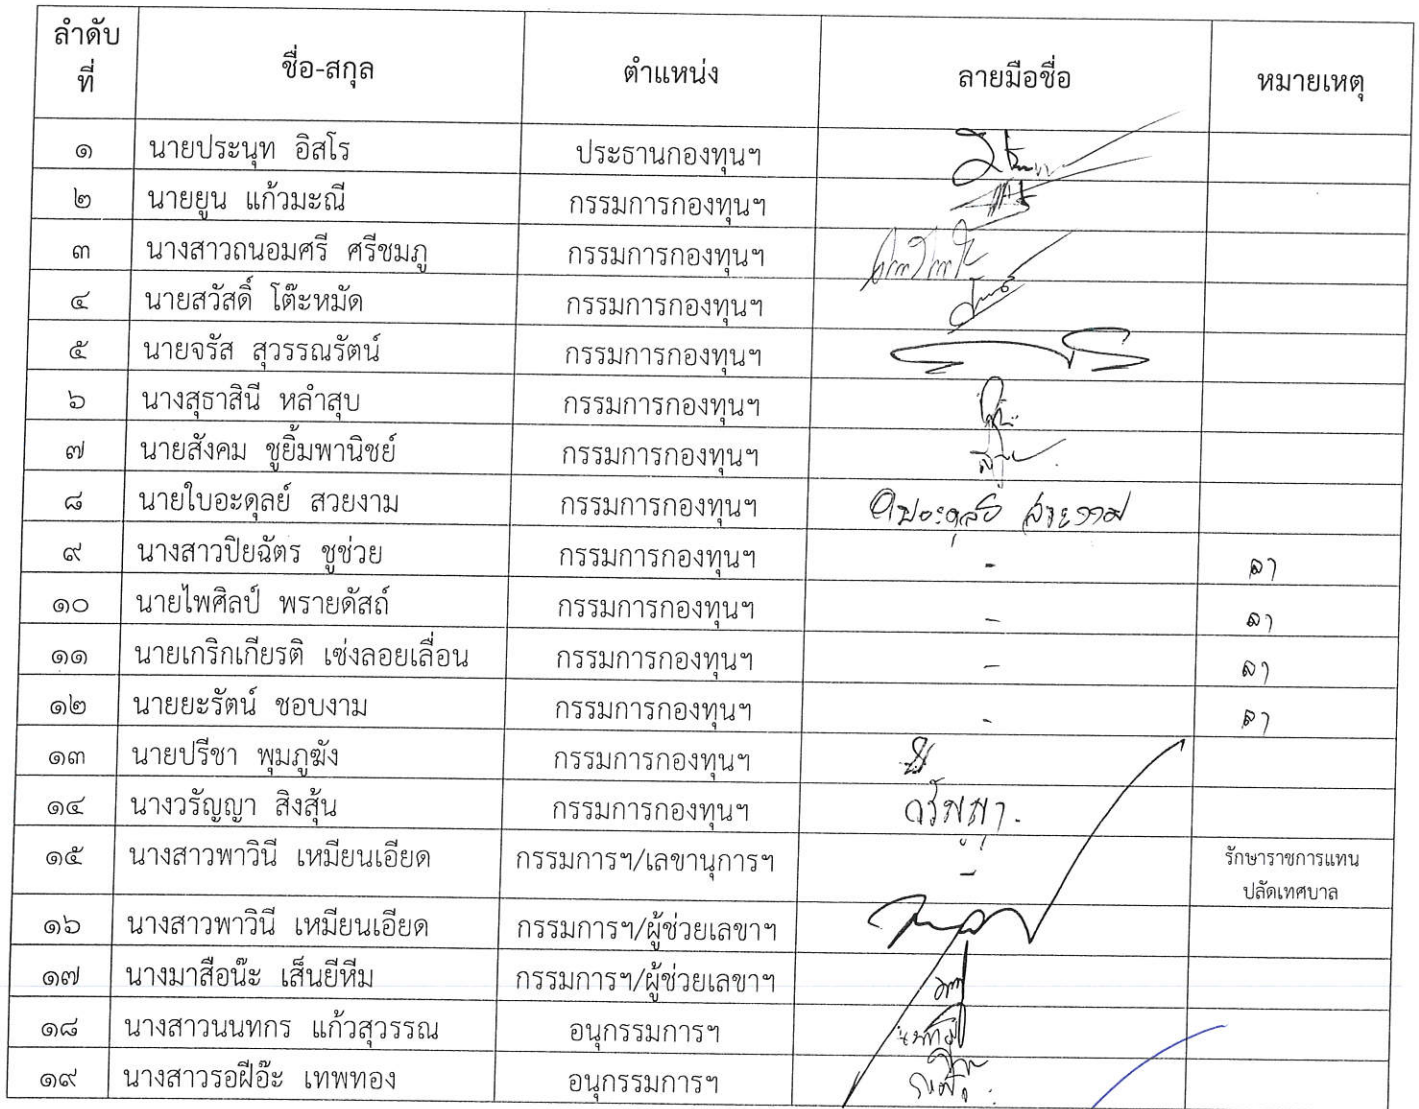 ลำดับ
ที่
ชื่อ-สกุล
ตำแหน่ง
ลายมือชื่อ
หมายเหตุ
๑ นายประนุท อิสโร ประธานกองทุนฯ
๒ นายยูน แก้วมะณี กรรมการกองทุนฯ
๓ นางสาวถนอมศรี ศรีชมภู กรรมการกองทุนฯ
๔ นายสวัสดิ์ โต๊ะหมัด กรรมการกองทุนฯ
๕ นายจรัส สุวรรณรัตน์ กรรมการกองทุนฯ
๖ นางสุธาสินี หลำสุบ กรรมการกองทุนฯ
๗ นายสังคม ชูยิ้มพานิชย์ กรรมการกองทุนฯ
๘ นายใบอะดุลย์ สวยงาม กรรมการกองทุนฯ ใบอะดุลย์ สวยงาม
๙ นางสาวปิยฉัตร ชูช่วย กรรมการกองทุนฯ - ลา
๑๐ นายไพศิลป์ พรายดัสถ์ กรรมการกองทุนฯ - ลา
๑๑ นายเกริกเกียรติ เซ่งลอยเลื่อน กรรมการกองทุนฯ - ลา
๑๒ นายยะรัตน์ ชอบงาม กรรมการกองทุนฯ - ลา
๑๓ นายปรีชา พุมภูฆัง กรรมการกองทุนฯ
๑๔ นางวรัญญา สิงสุ้น กรรมการกองทุนฯ วรัญญา.
๑๕ นางสาวพาวินี เหมียนเอียด กรรมการฯ/เลขานุการฯ - รักษาราชการแทน
ปลัดเทศบาล
๑๖ นางสาวพาวินี เหมียนเอียด กรรมการฯ/ผู้ช่วยเลขาฯ
๑๗ นางมาสือน๊ะ เส็นยีหีม กรรมการฯ/ผู้ช่วยเลขาฯ
๑๘ นางสาวนนทกร แก้วสุวรรณ อนุกรรมการฯ
๑๙ นางสาวรอฝีอ๊ะ เทพทอง อนุกรรมการฯ